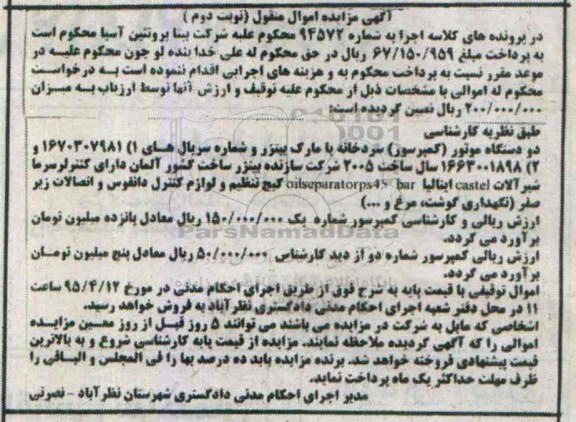 آگهی مزایده اموال منقول (نوبت دوم)
در پرونده های کلاسه اجرا به شماره ۹۴۵۷۲ محکوم علیه شرکت بیتا پروتئین آسیا محکوم است
به پرداخت مبلغ ۶۷/۱۵۰/۹۵۹ ریال در حق محکوم له علی خدا بنده لو چون محکوم علیه در
موعد مقرر نسبت به پرداخت محکوم به و هزینه های اجرایی اقدام ننموده است به درخواست
محکوم له اموالی با مشخصات ذیل از محکوم علیه توقیف و ارزش آنها توسط ارزیاب به میزان
۲۰۰/۰۰۰/۰۰۰ ریال تعیین گردیده است:
طبق نظریه کارشناسی
دو دستگاه موتور (کمپرسور) سردخانه با مارک بیتزر و شماره سریال های ۱) ۱۶۷۰۳۰۷۹۸۱ و
۲) ۱۶۶۳۰۰۱۸۹۸ سال ساخت ۲۰۰۵ شرکت سازنده بیتزر ساخت کشور آلمان دارای کنترلرسرما
شیرآلات castel ایتالیا oilseparatorps45 bar گیج تنظیم و لوازم کنترل دانفوس و اتصالات زیر
صفر (نگهداری گوشت، مرغ و ...)
ارزش ریالی و کارشناسی کمپرسور شماره یک ۱۵۰/۰۰۰/۰۰۰ ریال معادل پانزده میلیون تومان
برآورد می گردد.
ارزش ریالی کمپرسور شماره دو از دید کارشناس ۵۰/۰۰۰/۰۰۰ ریال معادل پنج میلیون تومان
برآورد می گردد.
اموال توقیفی با قیمت پایه به شرح فوق از طریق اجرای احکام مدنی در مورخ ۹۵/۴/۱۲ ساعت
۱۱ در محل دفتر شعبه اجرای احکام مدنی دادگستری نظرآباد به فروش خواهد رسید.
اشخاصی که مایل به شرکت در مزایده می باشند می توانند ۵ روز قبل از روز معین مزایده
اموالی را که آگهی گردیده ملاحظه نمایند. مزایده از قیمت پایه کارشناسی شروع و به بالاترین
قیمت پیشنهادی فروخته خواهد شد. برنده مزایده باید ده درصد بها را فی المجلس و الباقی را
ظرف مهلت حداکثر یک ماه پرداخت نماید.
مدیر اجرای احکام مدنی دادگستری شهرستان نظرآباد - نصرتی
ParsNamadData